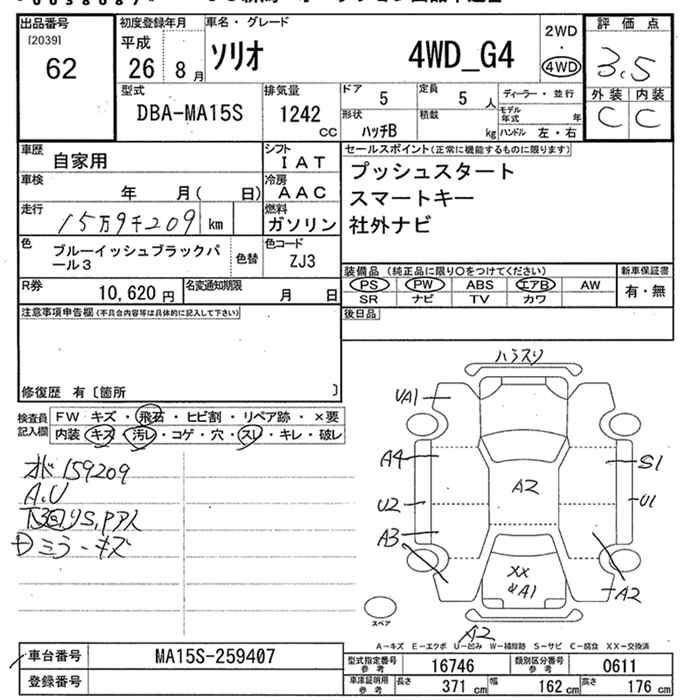 出品番号
[2039]
62
初度登録年月
平成
26 8月
車名・グレード
ソリオ 4WD_G4
2WD
・
4WD
評価点
3.5
外装 内装
C C
型式
DBA-MA15S
排気量
1242
cc
ドア
5
定員
5 人
形状
ハッチB
積載
kg
ディーラー・並行
モデル年式 年
ハンドル 左・右
車歴
自家用
シフト
IAT
車検
年 月( 日)
冷房
AAC
走行
15万9千209 km
燃料
ガソリン
色
ブルーイッシュブラックパール3
色替
色コード
ZJ3
R券
10,620円
名変通知期限
月 日
セールスポイント(正常に機能するものに限ります)
プッシュスタート
スマートキー
社外ナビ
装備品(純正品に限り○をつけてください)
PS PW ABS エアB AW
SR ナビ TV カワ
新車保証書
有・無
後日品
注意事項申告欄(不具合内容等は具体的に記入して下さい)
修復歴 有〔箇所 〕
検査員記入欄
FW キズ・飛石・ヒビ割・リペア跡・×要
内装 キズ・汚レ・コゲ・穴・スレ・キレ・破レ
159209
A.U
ミラーキズ
ハラスリ
UA1
A4
U2
A3
A2
S1
U1
XX
A1
A2
A2
スペア
A-キズ E-エクボ U-凹み W-補修跡 S-サビ C-腐食 XX-交換済
車台番号
MA15S-259407
登録番号
型式指定番号参考
16746
類別区分番号参考
0611
車庫証明用参考
長さ 371 cm 幅 162 cm 高さ 176 cm